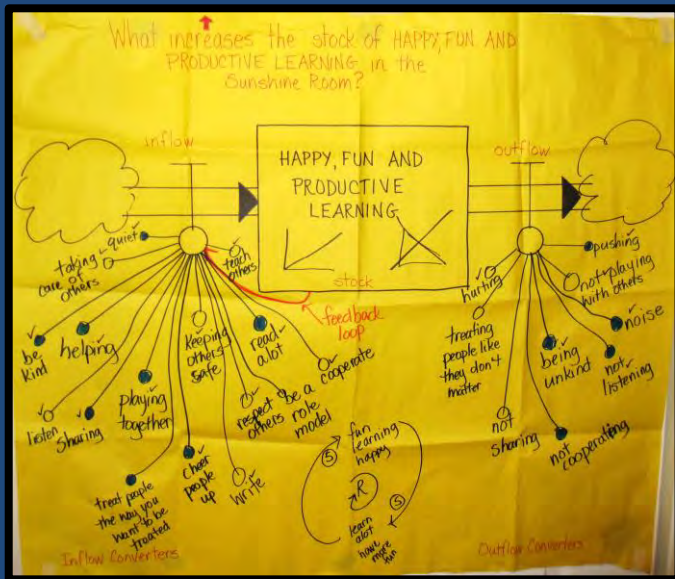 What increases the stock of HAPPY, FUN AND
PRODUCTIVE LEARNING in the
Sunshine Room?
inflow
HAPPY, FUN AND
PRODUCTIVE
LEARNING
stock
outflow
feedback
loop
quiet
taking
care of
others
teach
others
be
kind
helping
keeping
others
safe
read
alot
cooperate
listen
sharing
playing
together
respect
others
be a
role
model
treat people
the way you
want to be
treated
cheer
people
up
write
Inflow Converters
fun
learning
happy
S
R
S
learn
alot
have
more
fun
pushing
hurting
not playing
with others
noise
treating
people like
they don't
matter
being
unkind
not
listening
not
sharing
not
cooperating
Outflow Converters